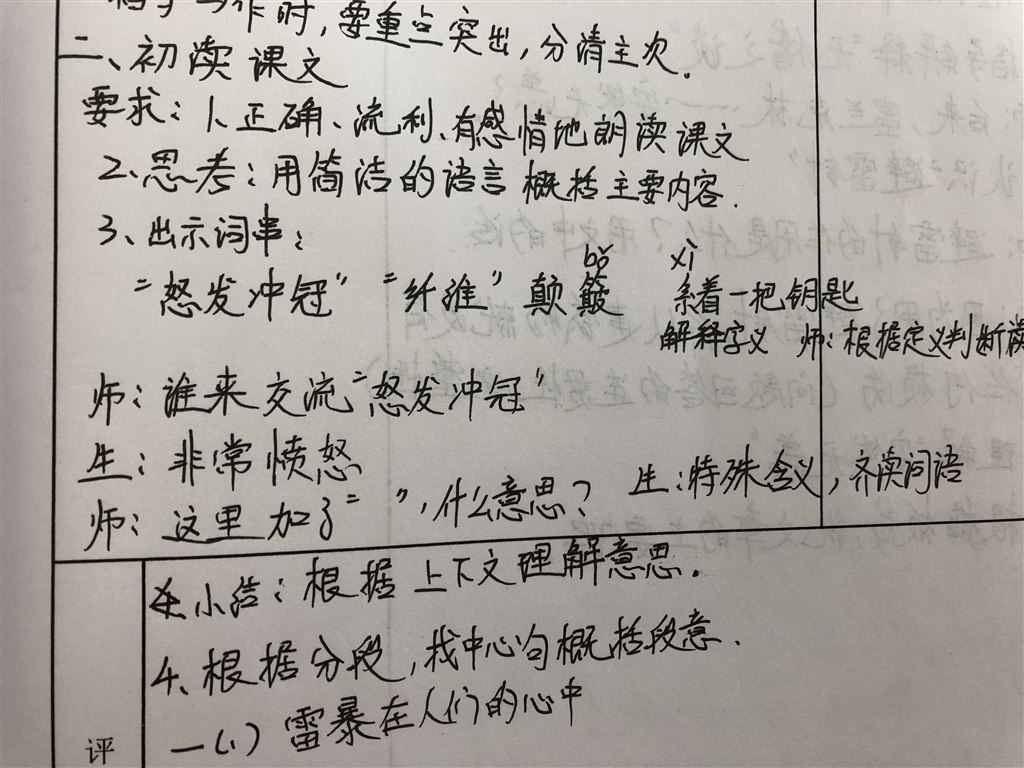 时,要重点突出,分清主次。
二、初读课文
要求:1、正确、流利、有感情地朗读课文
2、思考:用简洁的语言概括主要内容.
3、出示词串:
bǒ xì
“怒发冲冠” “纤维” 颠簸 系着一把钥匙
解释字义 师:根据定义判断读
师:谁来交流“怒发冲冠”
生:非常愤怒
师:这里加了“ ”,什么意思? 生:特殊含义,齐读词语
小结:根据上下文理解意思.
4、根据分段,找中心句概括段意.
一(1)雷暴在人们的心中
评